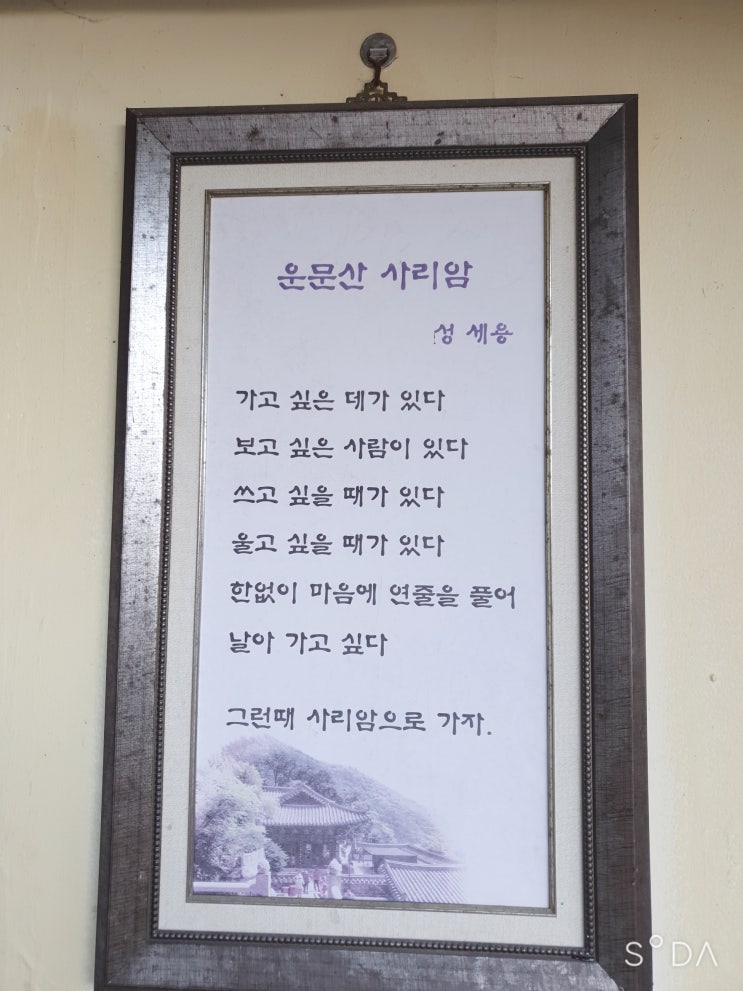 운문산 사리암
성 세용
가고 싶은 데가 있다
보고 싶은 사람이 있다
쓰고 싶을 때가 있다
울고 싶을 때가 있다
한없이 마음에 연줄을 풀어
날아 가고 싶다
그런때 사리암으로 가자.
SODA